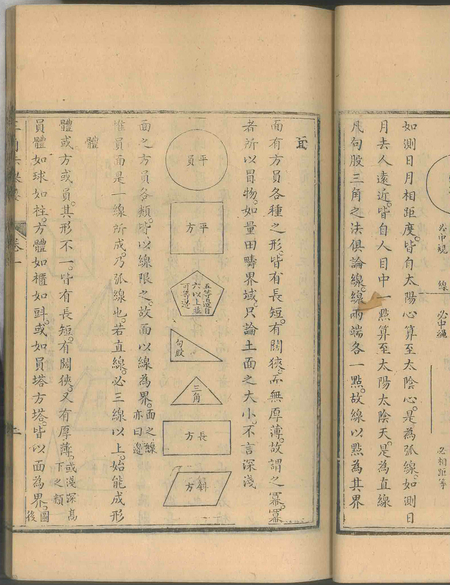 必中規
線
必中繩
如測日月相距度皆自太陽心算至太陰心是為弧線如測日
月去人遠近皆自人目中一點算至太陽太陰天是為直線
凡句股三角之法俱論線線兩端各一點故線以點為其界
面有方員各種之形皆有長短有闊狹而無厚薄故謂之冪冪
者所以冒物如量田疇界域只論土面之大小不言深淺
平員
平方
句股
三角
長方
斜方
面之方員各類皆以線限之故面以線為界面之線亦曰邊
惟員面是一線所成乃弧線也若直線必三線以上始能成形
體
體或方或員其形不一皆有長短有闊狹又有厚薄或淺深高下之類
員體如球如柱方體如櫃如㪷或如員塔方塔皆以面為界圖後